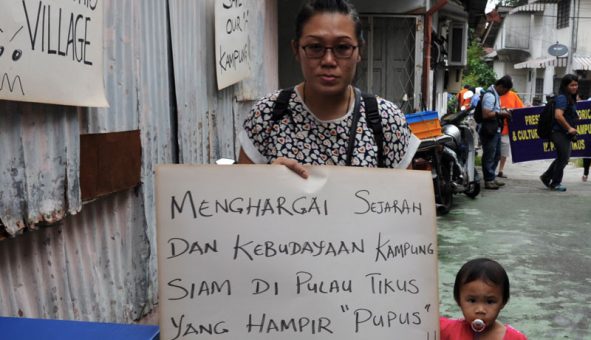 VILLAGE
SAVE
OUR
KAMPUNG
MENGHARGAI SEJARAH
DAN KEBUDAYAAN KAMPUNG
SIAM DI PULAU TIKUS
YANG HAMPIR "PUPUS"
& CULTU